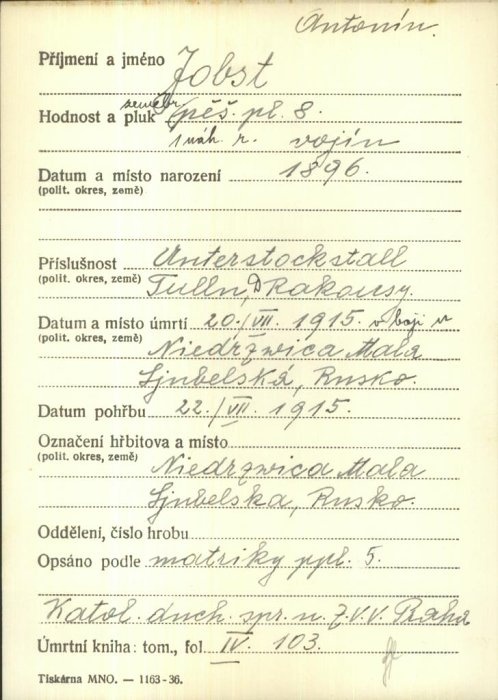 Antonín.
Příjmení a jméno Jobst
Hodnost a pluk zeměbr. pěš. pl. 8.
1 náh. r. vojín
Datum a místo narození 1896.
(polit. okres, země)
Příslušnost Unterstockstall
(polit. okres, země) Tulln, D Rakousy.
Datum a místo úmrtí 20./VII. 1915. v boji u
(polit. okres, země) Niedrzwica Mala
Ljubelská, Rusko.
Datum pohřbu 22./VII. 1915.
Označení hřbitova a místo
(polit. okres, země) Niedrzwica Mala
Ljubelska, Rusko.
Oddělení, číslo hrobu
Opsáno podle matriky ppl. 5.
Katol. duch. spr. n. Z.V.V. Praha
Úmrtní kniha: tom., fol IV. 103.
Tiskárna MNO. — 1163-36.